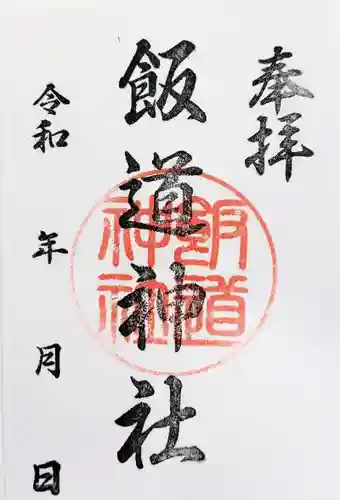 奉拝
飯道神社
飯道
神社
令和 年 月 日